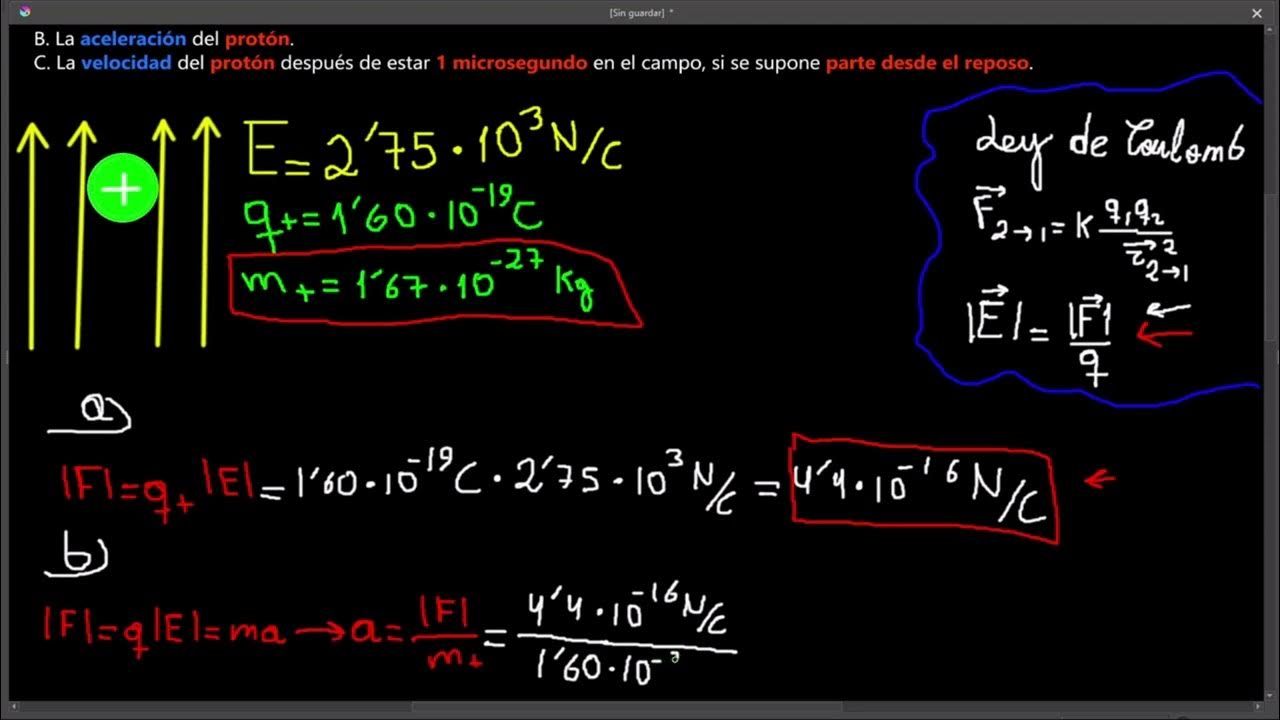 [Sin guardar] *
B. La aceleración del protón.
C. La velocidad del protón después de estar 1 microsegundo en el campo, si se supone parte desde el reposo.
E = 2'75 · 10³ N/C
q₊ = 1'60 · 10⁻¹⁹ C
m₊ = 1'67 · 10⁻²⁷ Kg
Ley de Coulomb
F⃗₂→₁ = K q₁q₂ / r⃗²₂→₁
|E⃗| = |F⃗| / q
a)
|F| = q₊ |E| = 1'60 · 10⁻¹⁹ C · 2'75 · 10³ N/C = 4'4 · 10⁻¹⁶ N/C
b)
|F| = q|E| = ma → a = |F| / m₊ = 4'4 · 10⁻¹⁶ N/C / 1'60 · 10⁻